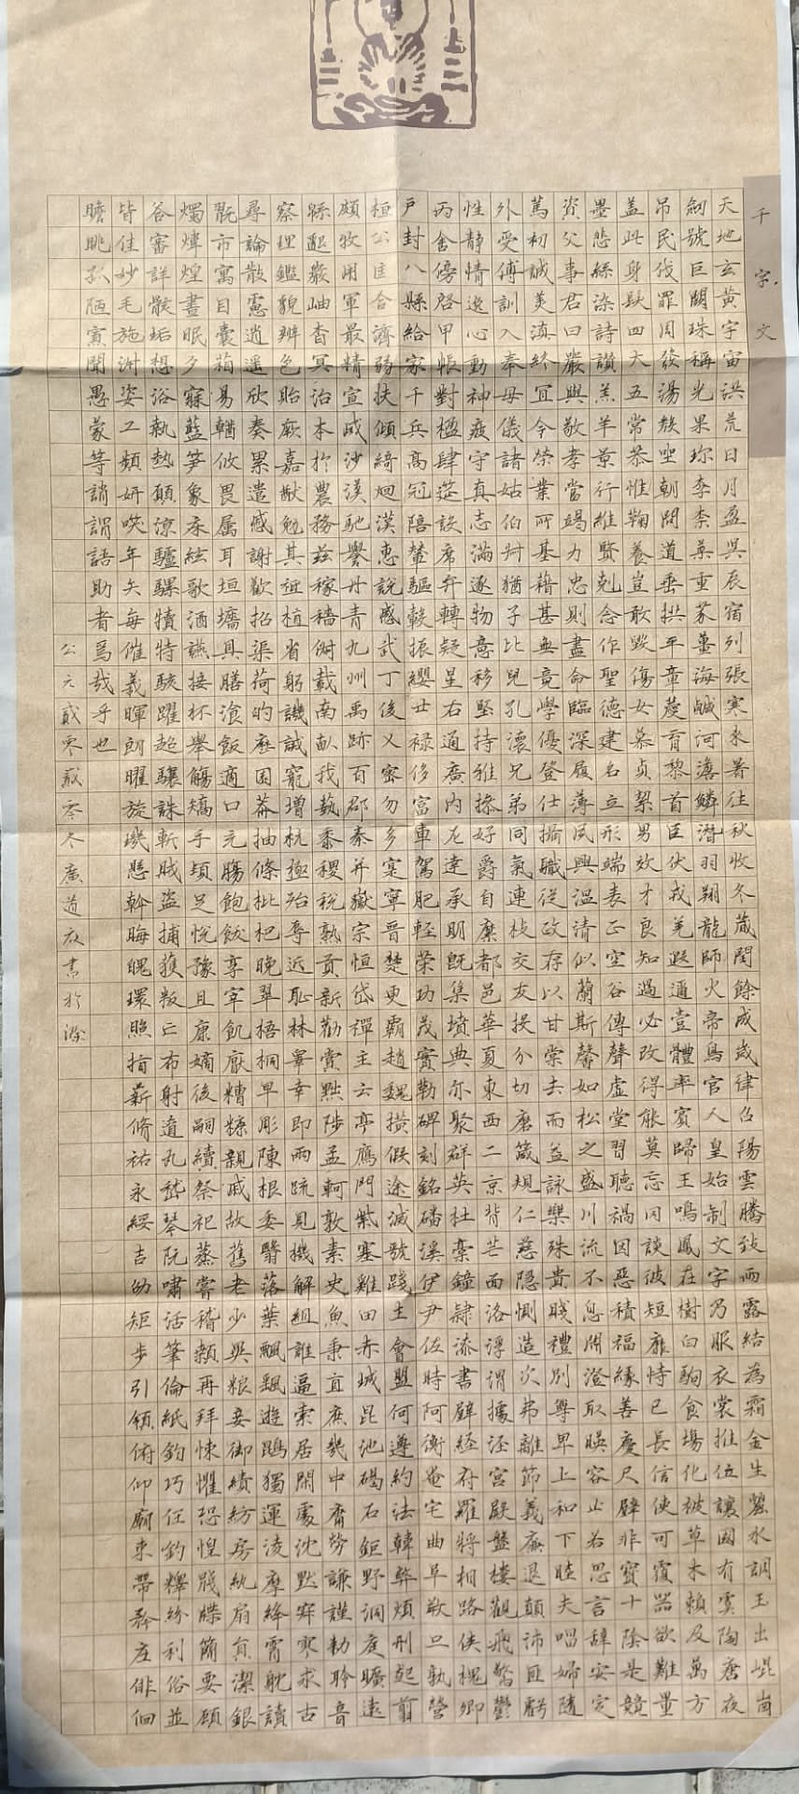 千字文
天地玄黃宇宙洪荒日月盈昃辰宿列張寒來暑往秋收冬蔵閏餘成歲律呂陽雲騰致雨露結為霜金生麗水調玉出崐崗
劍號巨闕珠稱光果珎李柰菜重芥薑海鹹河淡鱗潛羽翔龍師火帝鳥官人皇始制文字乃服衣裳推位讓國有虞陶唐夜
吊民伐罪周發湯殷坐朝問道垂拱平章愛育黎首臣伏戎羌遐邇壹體率賓歸王鳴鳳在樹白駒食場化被草木賴及萬方
蓋此身髮四大五常恭惟鞠養豈敢毀傷女慕貞絜男效才良知過必改得能莫忘罔談彼短靡恃己長信使可覆器欲難量
墨悲絲染詩讚羔羊景行維賢剋念作聖德建名立形端表正空谷傳聲虛堂習聽禍因惡積福緣善慶尺璧非寶寸陰是競
資父事君曰嚴與敬孝當竭力忠則盡命臨深履薄夙興溫清似蘭斯馨如松之盛川流不息淵澄取暎容止若思言辭安定
篤初誠美慎終宜令榮業所基藉甚無竟學優登仕攝職從政存以甘棠去而益詠樂殊貴賤禮別尊卑上和下睦夫唱婦隨
外受傅訓入奉母儀諸姑伯叔猶子比兒孔懷兄弟同氣連枝交友投分切磨箴規仁慈隱惻造次弗離節義廉退顛沛匪虧
性靜情逸心動神疲守真志滿逐物意移堅持雅操好爵自縻都邑華夏東西二京背芒面洛浮渭據涇宮殿盤樓觀飛驚鬱
丙舍傍啓甲帳對楹肆筵設席弁轉疑星右通廣內左達承明既集墳典亦聚群英杜稾鐘隸漆書壁経府羅將相路俠槐卿
戶封八縣給家千兵高冠陪輦驅轂振纓世祿侈富車駕肥輕策功茂實勒碑刻銘磻溪伊尹佐時阿衡奄宅曲阜微旦孰營
桓公匡合濟弱扶傾綺廻漢惠說感武丁俊乂密勿多寔寧晉楚更霸趙魏橫假途滅虢踐土會盟何遵約法韓弊煩刑起翦
頗牧用軍最精宣威沙漠馳譽丹青九州禹跡百郡秦并嶽宗恒岱禪主云亭鴈門紫塞雞田赤城昆池碣石鉅野洞庭曠遠
緜邈巖岫杳冥治本於農務茲稼穡俶載南畝我藝黍稷稅熟貢新勸賞黜陟孟軻敦素史魚秉直庶幾中庸勞謙謹勅聆音
察理鑑貌辨色貽厥嘉猷勉其祗植省躬譏誡寵增抗極殆辱近恥林睾幸即兩疏見機解組誰逼索居閑處沈默寂寥求古
尋論散慮逍遙欣奏累遣慼謝歡招渠荷的歷園莽抽條枇杷晚翠梧桐早彫陳根委翳落葉飄颻遊鵾獨運凌摩絳霄躭讀
翫市寓目囊箱易輶攸畏属耳垣墻具膳飡飯適口充腸飽飫享宰飢厭糟糠親戚故舊老少異粮妾御績紡房紈扇員潔銀
燭煒煌晝眠夕寐藍笋象床絃歌酒讌接杯舉觴矯手頓足悅豫且康嫡後嗣續祭祀蒸嘗稽顙再拜悚懼恐惶牋牒簡要顧
答審詳骸垢想浴執熱願涼驢騾犢特駭躍超驤誅斬賊盜捕獲叛亡布射遼丸嵇琴阮嘯恬筆倫紙鈞巧任釣釋紛利俗並
皆佳妙毛施淑姿工顰妍咲年矢每催義暉朗曜旋璣懸斡晦魄環照指薪脩祐永綏吉劭矩步引領俯仰廟束帶矜庄俳佪
瞻眺孤陋寡聞愚蒙等誚謂語助者焉哉乎也
公元貳零貳零冬廣道辰書於滁